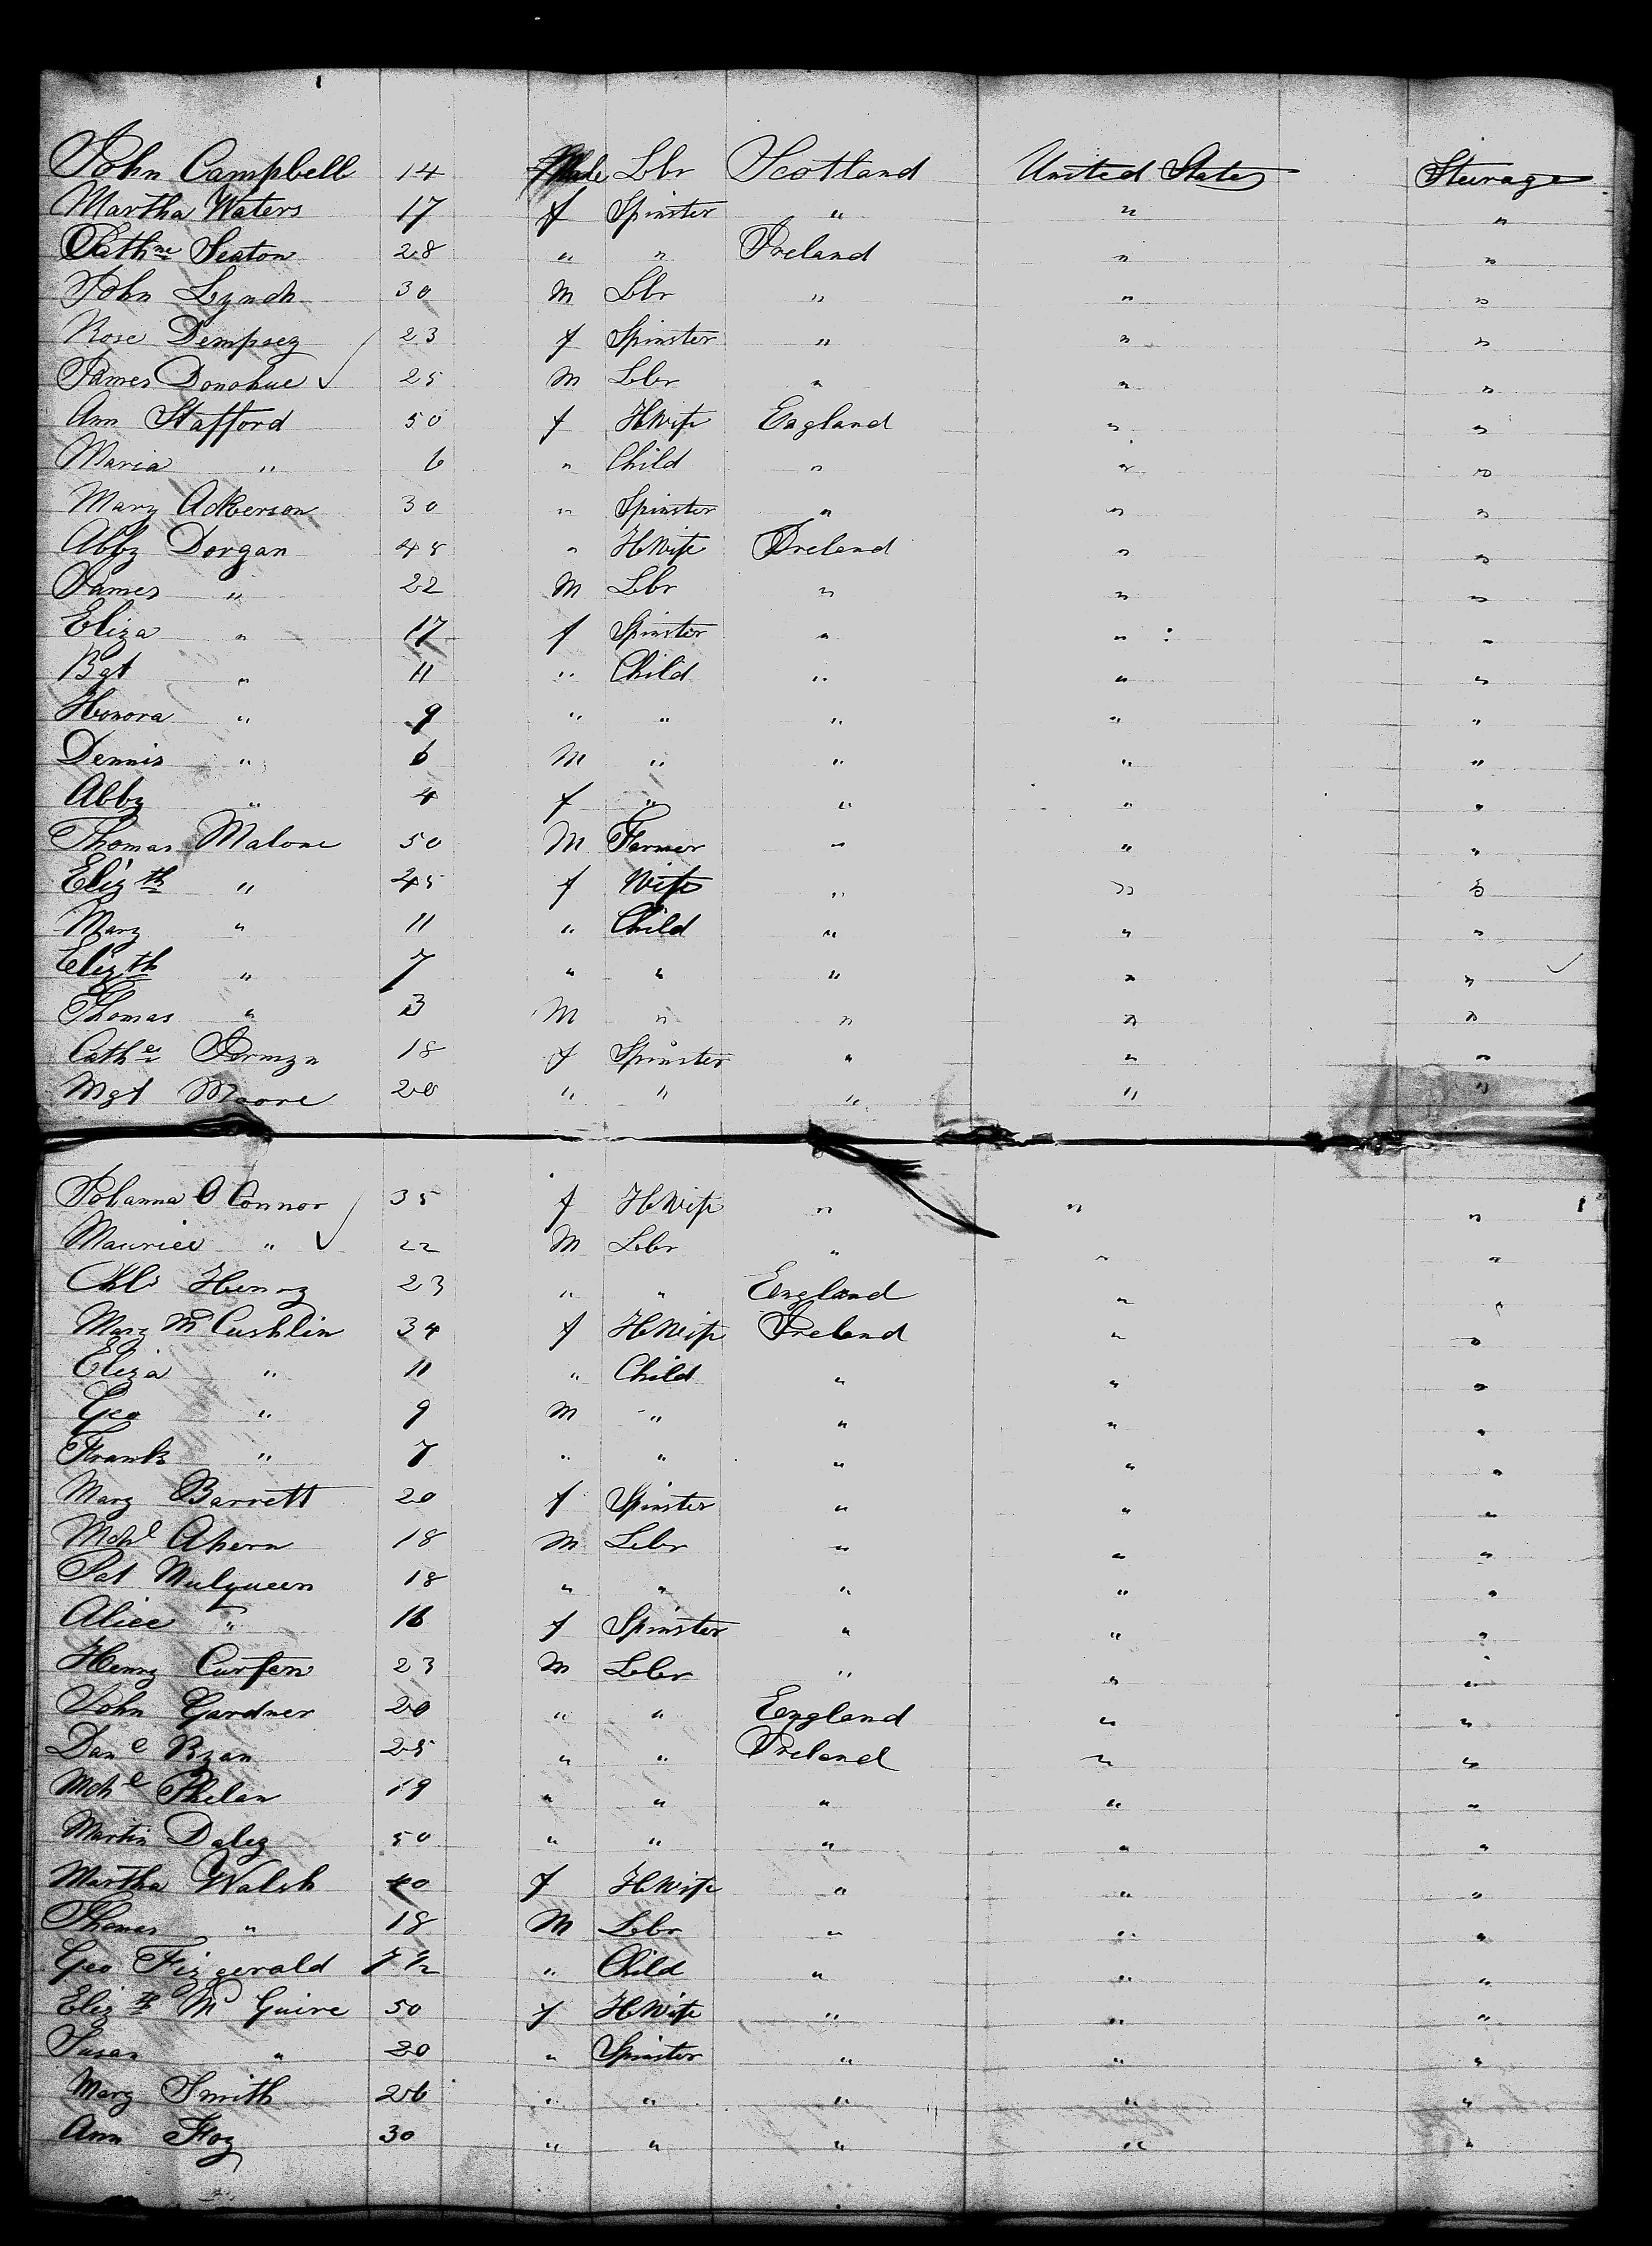 John Campbell 14 Male Lbr Scotland United States Steerage
Martha Waters 17 f Spinster " " "
Cathne Seaton 28 " " Ireland " "
John Lynch 30 M Lbr " " "
Rose Dempsey 23 f Spinster " " "
James Donohue 25 M Lbr " " "
Ann Stafford 50 f HWife England " "
Maria " 6 " Child " " "
Mary Ackerson 30 " Spinster " " "
Abby Dorgan 48 " HWife Ireland " "
James " 22 M Lbr " " "
Eliza " 17 f Spinster " " "
Bgt " 11 " Child " " "
Honora " 9 " " " " "
Dennis " 6 M " " " "
Abby " 4 f " " " "
Thomas Malone 50 M Farmer " " "
Elizth " 45 f Wife " " "
Mary " 11 " Child " " "
Elizth " 7 " " " " "
Thomas " 3 M " " " "
Cathe 18 f Spinster " " "
Mgt Moore 20 " " " " "
Johanna O Connor 35 f HWife " " "
Maurice " 22 M Lbr " " "
Chls Henry 23 " " England " "
Mary Mc Cushlin 34 f HWife Ireland " "
Eliza " 11 " Child " " "
Geo " 9 M " " " "
Frank " 7 " " " " "
Mary Barrett 20 f Spinster " " "
Mchl Ahern 18 M Lbr " " "
Pat Mulqueen 18 " " " " "
Alice " 16 f Spinster " " "
Henry Curfen 23 M Lbr " " "
John Gardner 20 " " England " "
Danl Ryan 25 " " Ireland " "
Mchl Phelan 19 " " " " "
Martin Daley 50 " " " " "
Martha Walsh 40 f HWife " " "
Thomas " 18 M Lbr " " "
Geo Fizgerald 7½ " Child " " "
Elizth Mc Guire 50 f HWife " " "
Susan " 20 " Spinster " " "
Mary Smith 26 " " " " "
Ann Foy 30 " " " " "